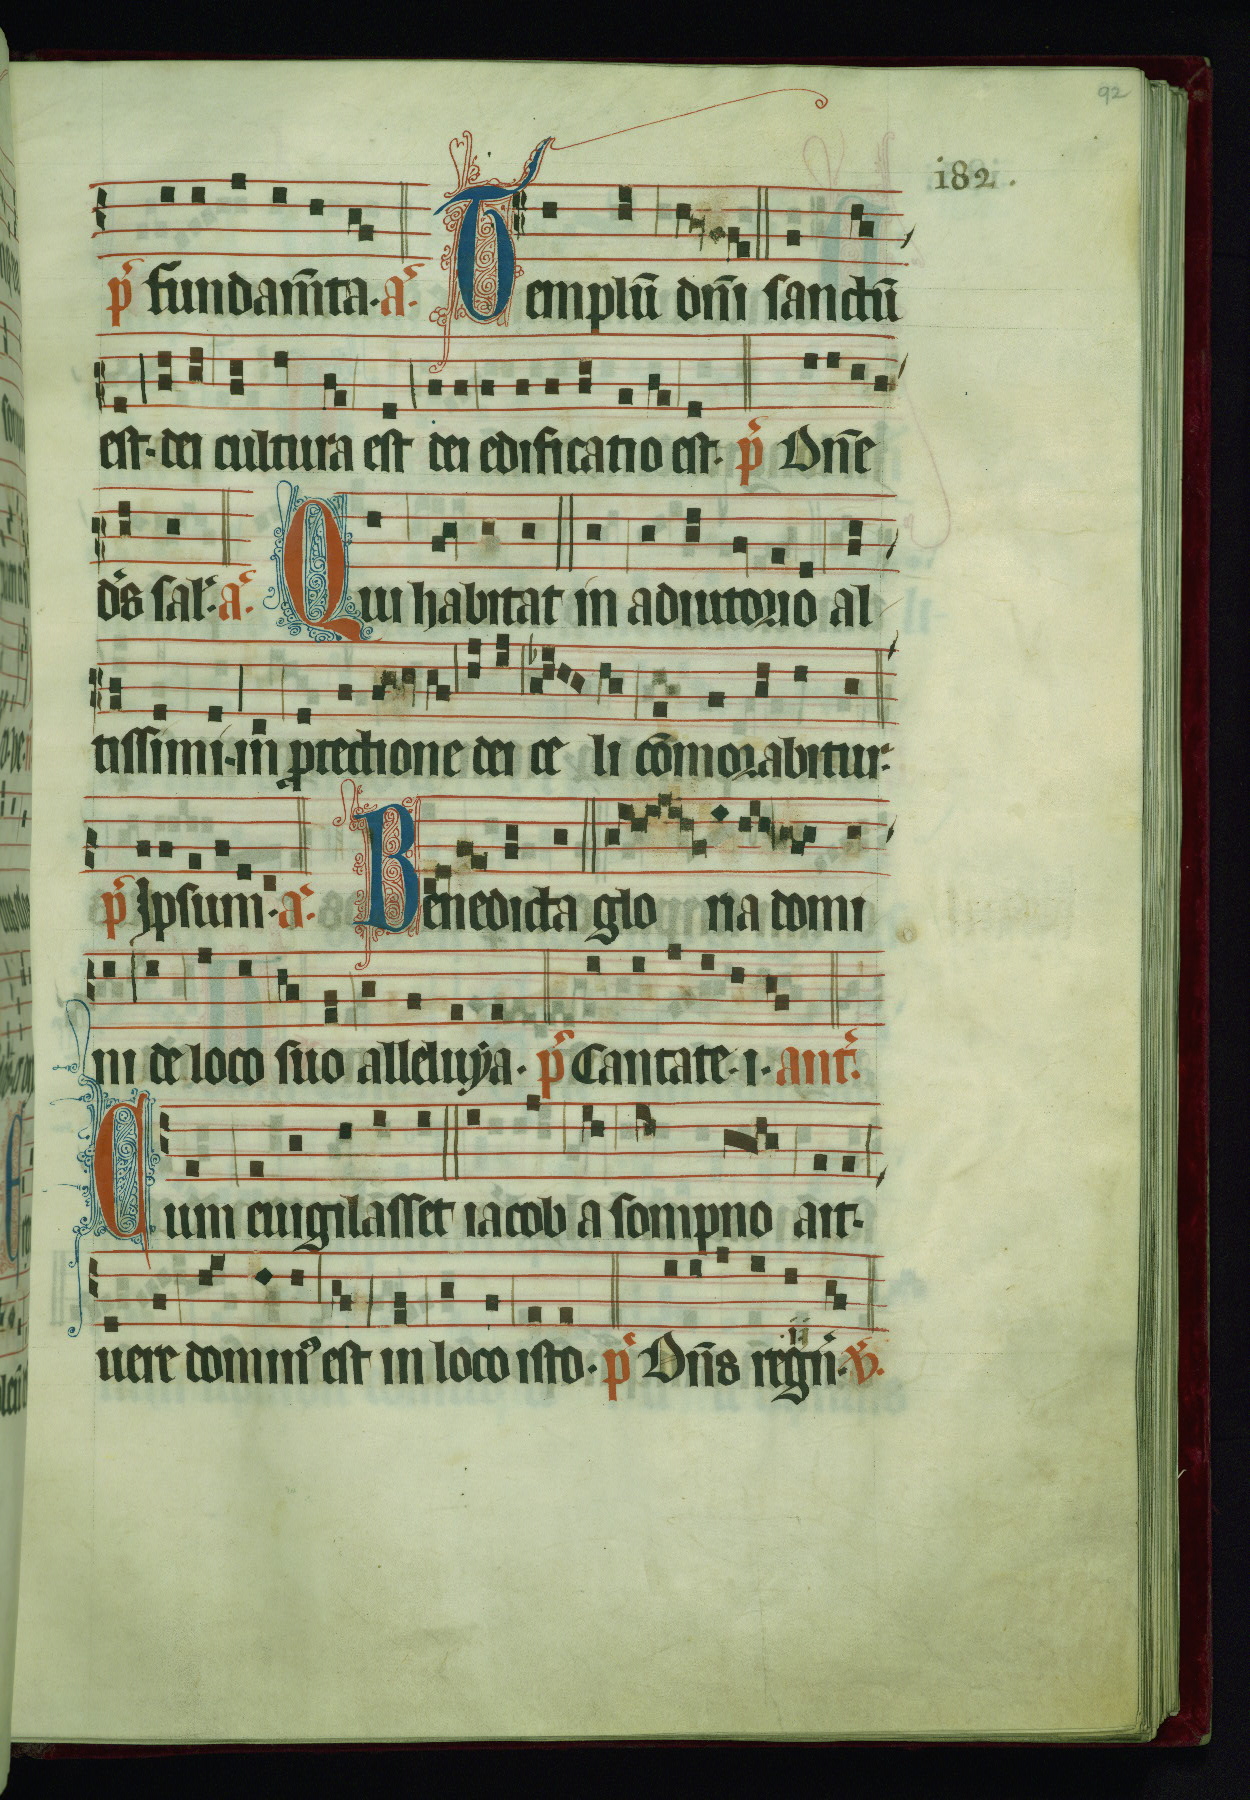 92
i82.
p̄s fundam̄ta. a. Templū dn̄i sanctū
est. dei cultura est dei edificatio est. p̄s Dn̄e
ds sal. a. Qui habitat in adiutorio al
tissimi. in protectione dei ce li cōmorabitur.
p̄s Ipsum. a. Benedicta glo ria domi
ni de loco suo alleluya. p̄s Cantate. i. ant.
Cum euigilasset iacob a sompno ait.
uere dominꝰ est in loco isto. p̄s Dn̄s regn. ii v.